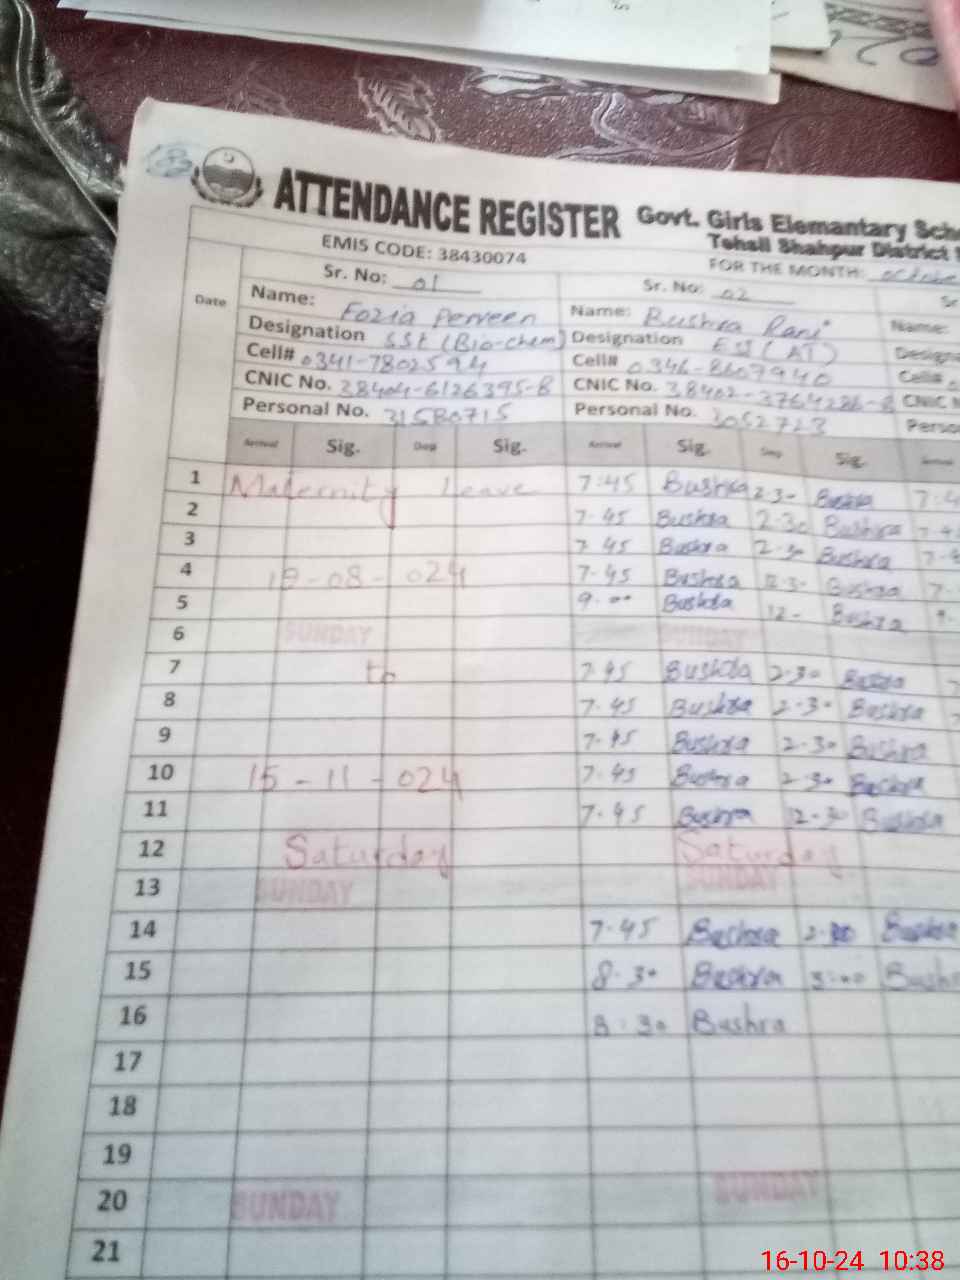 ATTENDANCE REGISTER Govt. Girls Elemantary
Tehsil Shahpur District
EMIS CODE: 38430074 FOR THE MONTH: October
Sr. No: 01 Sr. No: 02 Sr
Date Name: Fozia Perveen Name: Bushra Rani Name:
Designation SSt (Bio-chem) Designation
Cell# 0341-7802594 Cell# 0346-8607940
CNIC No. 38404-6126395-8 CNIC No. CNIC
Personal No. 31580715 Personal No. 3052723
Arrival Sig. Dep Sig. Arrival Sig. Dep Sig. Arrival
1 Maternity Leave 7:45 Bushra 2:30 Bushra 7:4
2 7.45 Bushra 2.30 Bushra
3 7.45 Bushra 2.30 Bushra
4 19-08-024 7.45 Bushra 12.30 Bushra
5 9.00 Bushra 12- Bushra 9.
6 SUNDAY SUNDAY
7 to 7.45 Bushra 2.30 Bushra 7
8 7.45 Bushra 2.30 Bushra
9 7.45 Bushra 2.30 Bushra
10 15-11-024 7.45 Bushra 2.30 Bushra
11 7.45 Bushra 12.30 Bushra
12 Saturday Saturday
13 SUNDAY SUNDAY
14 7.45 Bushra Bushra
15 8.30 Bushra 3:00 Bushra
16 8:30 Bushra
17
18
19
20 SUNDAY SUNDAY
21
16-10-24 10:38